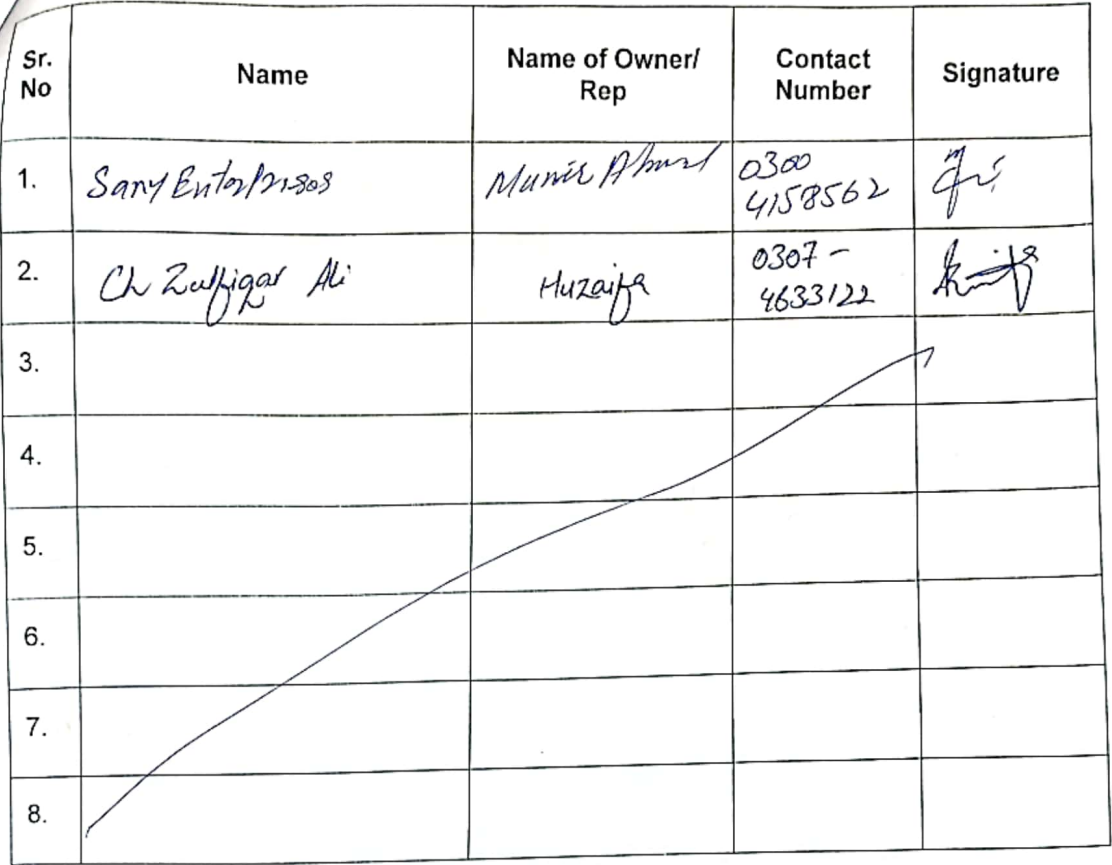 Sr. No Name Name of Owner/ Rep Contact Number Signature
1. Sany Enterprises Munir Ahmed 0300 4158562
2. Ch Zulfiqar Ali Huzaifa 0307- 4633122
3.
4.
5.
6.
7.
8.